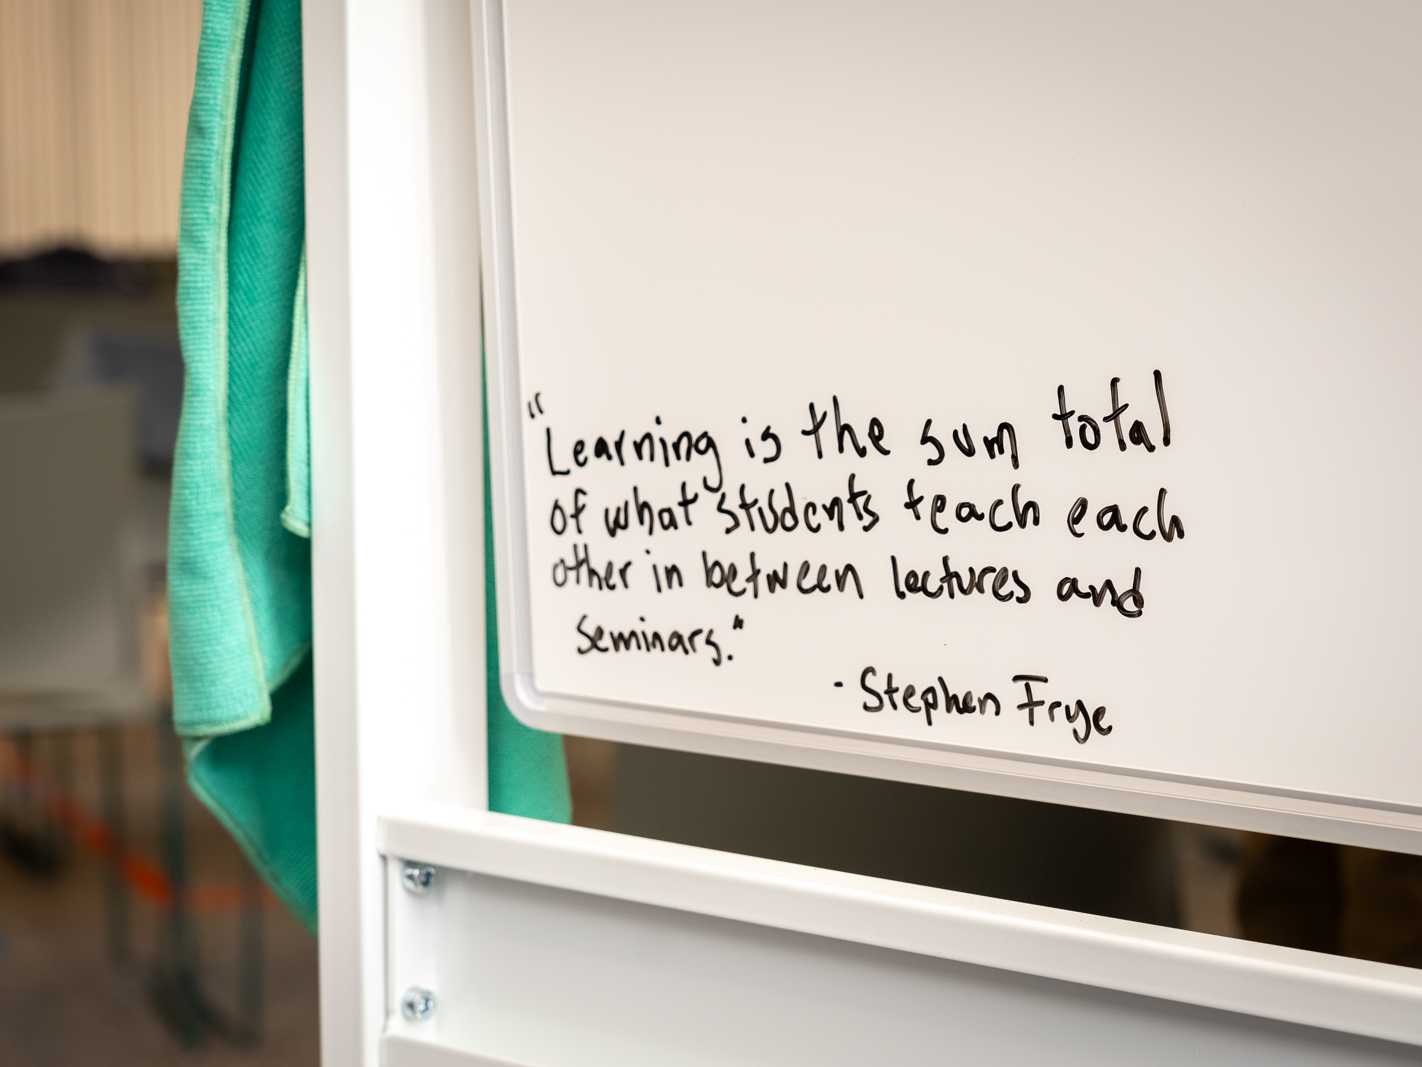 "Learning is the sum total
of what students teach each
other in between lectures and
seminars."
- Stephen Frye